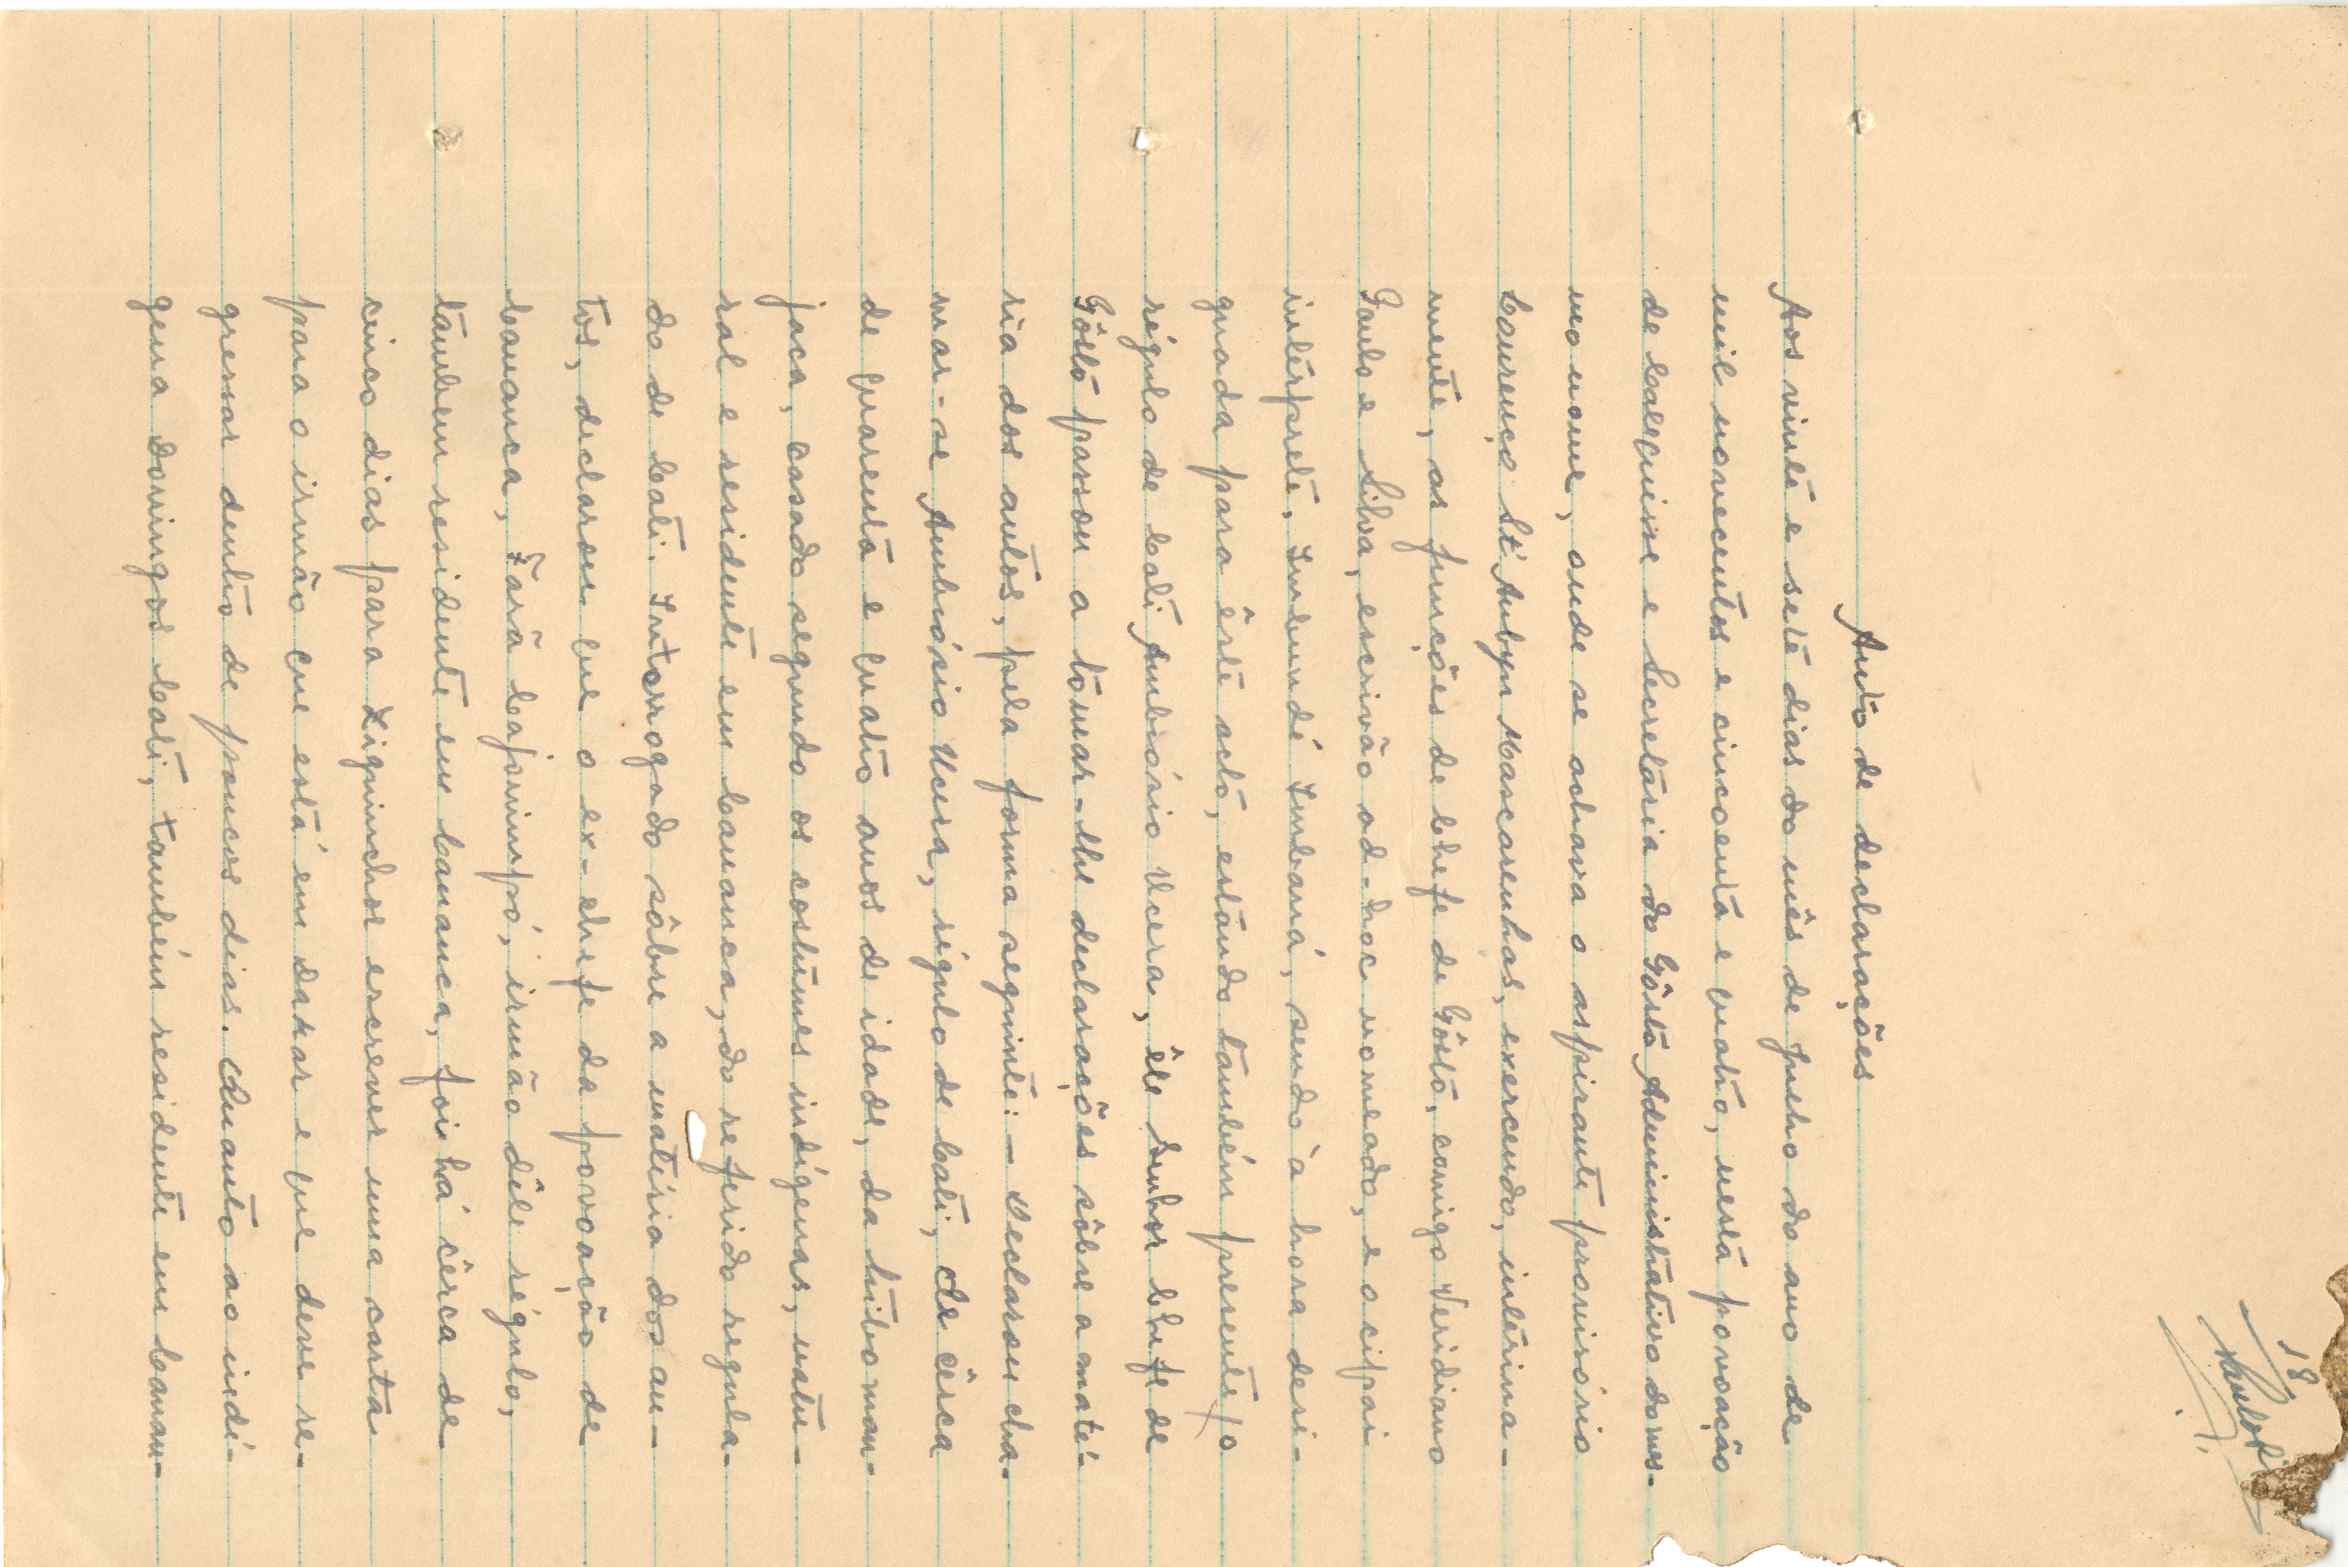 18
Auto de declarações
Aos vinte e sete dias do mês de Julho do ano de
mil novecentos e cincoenta e quatro, nesta povoação
de Calequisse e Secretaria do Pôsto Administrativo do mes-
mo nome, onde se achava o aspirante provisório
Lourenço St'Aubyn Mascarenhas, exercendo, interina-
mente, as funções de Chefe de Pôsto, comigo Veridiano
Paulo e Silva, escrivão ad-hoc nomeado, e o cipai
intérprete, Imbundé Imbaná, sendo à hora desi-
gnada para êste acto, estando também presente o
régulo de Cati, Ambrósio Ucera, êle Senhor Chefe de
Pôsto passou a tomar-lhe declarações sôbre a maté-
ria dos autos, pela forma seguinte: - Declarou cha-
mar-se Ambrósio Ucera, régulo de Cati, de cêrca
de quarenta e quatro anos de idade, da tribo man-
jaca, casado segundo os costumes indígenas, natu-
ral e residente em Cananca, do referido regula-
do de Cati. Interrogado sôbre a matéria dos au-
tos, declarou que o ex-chefe da povoação de
Cananca, Tarã Cajominpó, irmão dêle régulo,
tambem residente em Cananca, foi há cêrca de
cinco dias para Ziguinchor escrever uma carta
para o irmão que está em Dakar e que deve re-
gressar dentro de poucos dias. Quanto ao indí-
gena Domingos Cati, também residente em Canan-